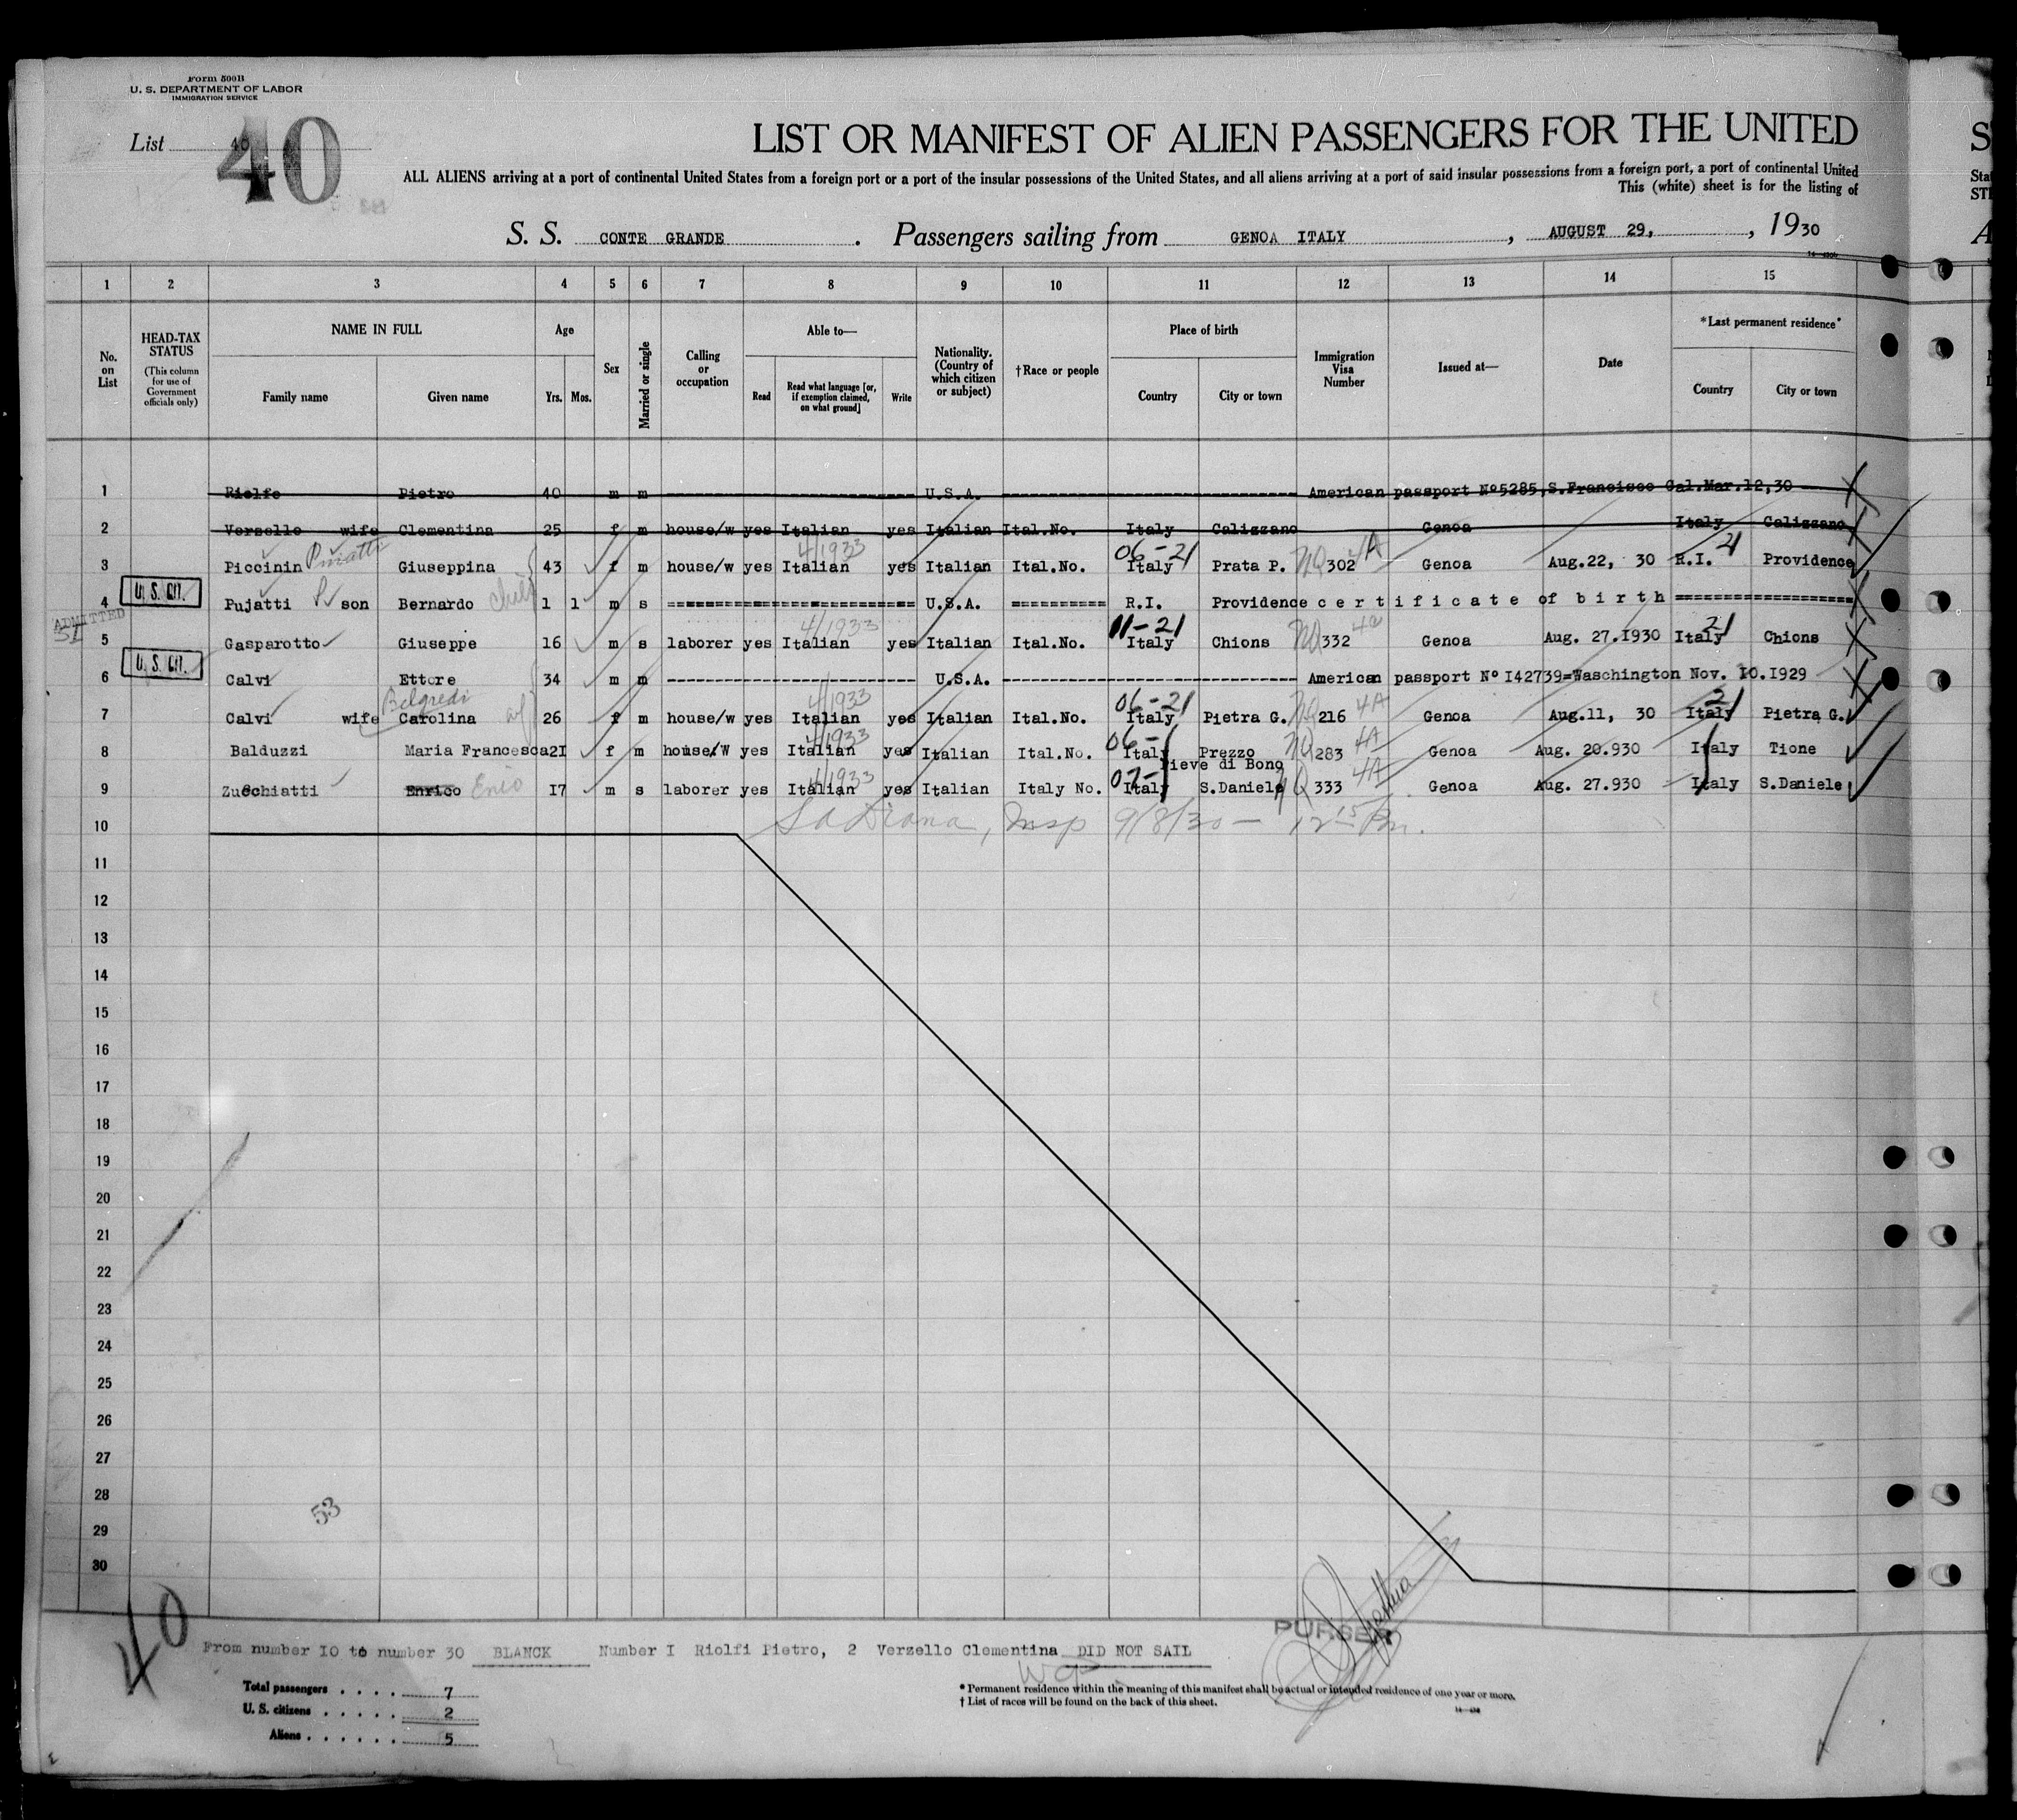 Form 500B
U. S. DEPARTMENT OF LABOR
IMMIGRATION SERVICE
List 40
40
LIST OR MANIFEST OF ALIEN PASSENGERS FOR THE UNITED
ALL ALIENS arriving at a port of continental United States from a foreign port or a port of the insular possessions of the United States, and all aliens arriving at a port of said insular possessions from a foreign port, a port of continental United
This (white) sheet is for the listing of
S. S. CONTE GRANDE. Passengers sailing from GENOA ITALY, AUGUST 29, , 1930
1 2 3 4 5 6 7 8 9 10 11 12 13 14 15
No. on List
HEAD-TAX STATUS
(This column for use of Government officials only)
NAME IN FULL
Family name Given name
Age
Yrs. Mos.
Sex
Married or single
Calling or occupation
Able to—
Read Read what language [or, if exemption claimed, on what ground] Write
Nationality. (Country of which citizen or subject)
†Race or people
Place of birth
Country City or town
Immigration Visa Number
Issued at—
Date
*Last permanent residence*
Country City or town
1 Rielfe Pietro 40 m m U.S.A. American passport Nº5285,S.Francisco Cal.Mar.12,30
2 Verzello wife Clementina 25 f m house/w yes Italian yes Italian Ital.No. Italy Calizzano Genoa Italy Calizzano
4/1933 06-21 4A 21
3 Piccinin Pujatti Giuseppina 43 f m house/w yes Italian yes Italian Ital.No. Italy Prata P. NQ 302 Genoa Aug.22, 30 R.I. Providence
U. S. CIT.
4 Pujatti P son Bernardo child 1 1 m s U.S.A. R.I. Providence certificate of birth
ADMITTED
SI
4/1933 11-21 21
5 Gasparotto Giuseppe 16 m s laborer yes Italian yes Italian Ital.No. Italy Chions NQ 332 4a Genoa Aug. 27.1930 Italy Chions
U. S. CIT.
6 Calvi Ettore 34 m m U.S.A. American passport Nº I42739=Waschington Nov. 10.I929
Belgredi 4/1933 06-21 21
7 Calvi wife Carolina wf 26 f m house/w yes Italian yes Italian Ital.No. Italy Pietra G. NQ 216 4A Genoa Aug.11, 30 Italy Pietra G.
4/1933 06-
8 Balduzzi Maria Francesca 2I f m house/W yes Italian yes Italian Ital.No. Italy Prezzo NQ 283 4A Genoa Aug. 20.930 Italy Tione
Pieve di Bono
4/1933 07-
9 Zucchiatti Enrico Enio I7 m s laborer yes Italian yes Italian Italy No. Italy S.Daniele NQ 333 4A Genoa Aug. 27.930 Italy S.Daniele
10 Insp 9/8/30 — 12 15 Pm.
11
12
13
14
15
16
17
18
19
20
21
22
23
24
25
26
27
28
53
29
30
40
PURSER
From number I0 to number 30 BLANCK Number I Riolfi Pietro, 2 Verzello Clementina DID NOT SAIL
Total passengers . . . . 7
U. S. citizens . . . . . 2
Aliens . . . . . . 5
* Permanent residence within the meaning of this manifest shall be actual or intended residence of one year or more.
† List of races will be found on the back of this sheet.